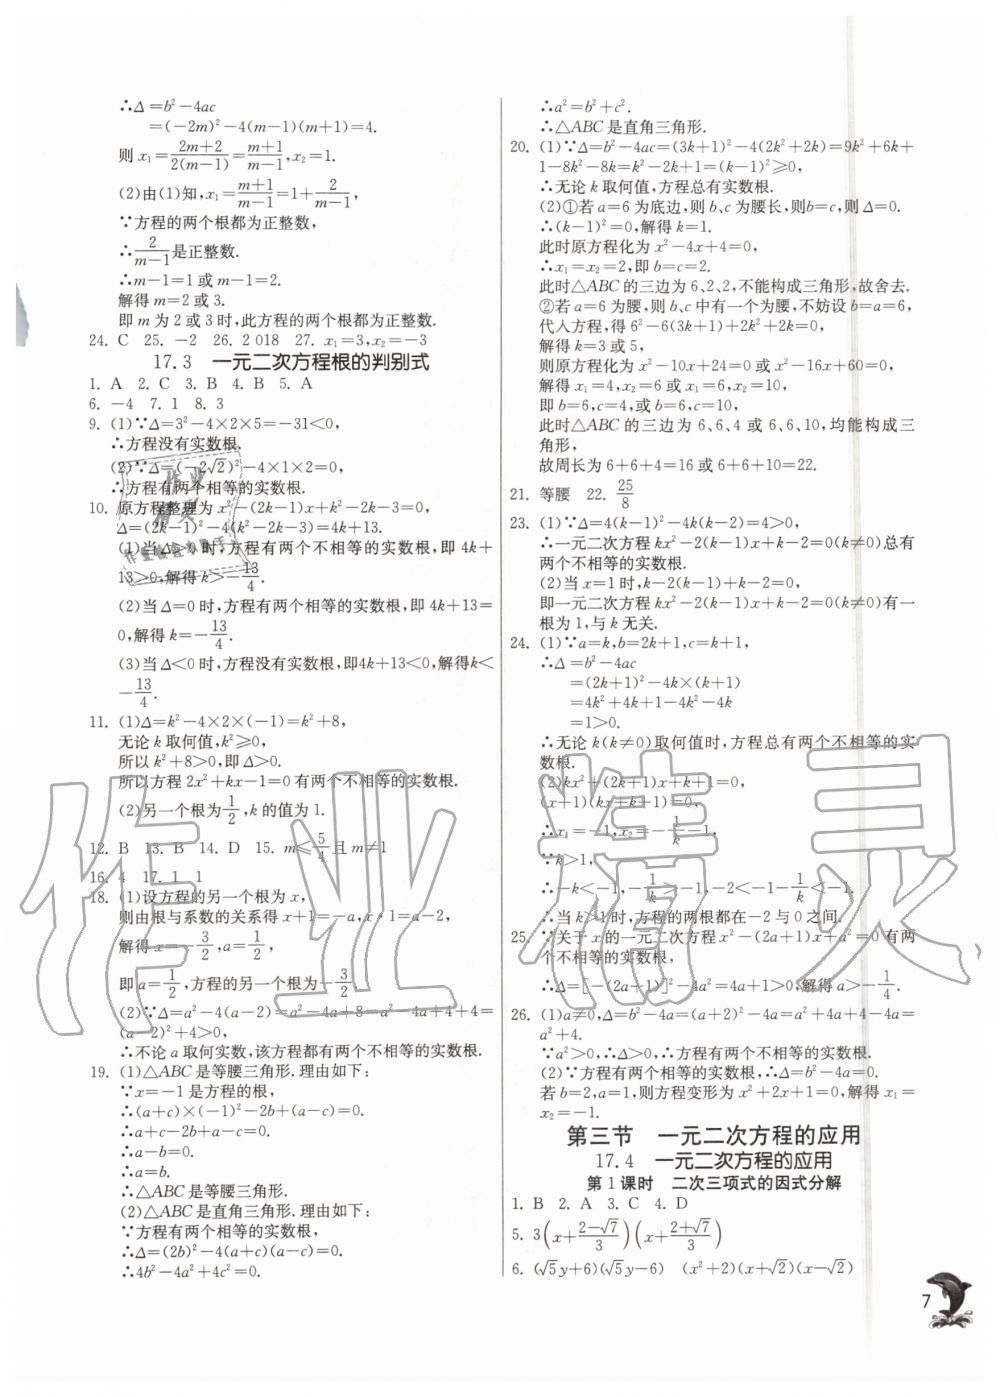 ∴Δ=b²-4ac
=(-2m)²-4(m-1)(m+1)=4.
则 x₁=\frac{2m+2}{2(m-1)}=\frac{m+1}{m-1},x₂=1.
(2)由(1)知,x₁=\frac{m+1}{m-1}=1+\frac{2}{m-1},
∵方程的两个根都为正整数,
∴\frac{2}{m-1}是正整数.
∴m-1=1 或 m-1=2.
解得 m=2 或 3.
即 m 为 2 或 3 时,此方程的两个根都为正整数.
24. C 25. -2 26. 2 018 27. x₁=3,x₂=-3
17.3 一元二次方程根的判别式
1. A 2. C 3. B 4. B 5. A
6. -4 7. 1 8. 3
9. (1)∵Δ=3²-4×2×5=-31<0,
∴方程没有实数根.
(2)∵Δ=(-2√2)²-4×1×2=0,
∴方程有两个相等的实数根.
10. 原方程整理为 x²-(2k-1)x+k²-2k-3=0,
Δ=(2k-1)²-4(k²-2k-3)=4k+13.
(1)当Δ>0 时,方程有两个不相等的实数根,即 4k+
13>0,解得 k>-\frac{13}{4}.
(2)当 Δ=0 时,方程有两个相等的实数根,即 4k+13=
0,解得 k=-\frac{13}{4}.
(3)当 Δ<0 时,方程没有实数根,即4k+13<0,解得k<
-\frac{13}{4}.
11. (1)Δ=k²-4×2×(-1)=k²+8,
无论 k 取何值,k²≥0,
所以 k²+8>0,即 Δ>0.
所以方程 2x²+kx-1=0 有两个不相等的实数根.
(2)另一个根为\frac{1}{2},k 的值为 1.
12. B 13. B 14. D 15. m≤\frac{5}{4}且 m≠1
16. 4 17. 1 1
18. (1)设方程的另一个根为 x,
则由根与系数的关系得 x+1=-a,x·1=a-2,
解得 x=-\frac{3}{2},a=\frac{1}{2},
即 a=\frac{1}{2},方程的另一个根为-\frac{3}{2}.
(2)∵Δ=a²-4(a-2)=a²-4a+8=a²-4a+4+4=
(a-2)²+4>0,
∴不论 a 取何实数,该方程都有两个不相等的实数根.
19. (1)△ABC 是等腰三角形.理由如下:
∵x=-1 是方程的根,
∴(a+c)×(-1)²-2b+(a-c)=0.
∴a+c-2b+a-c=0.
∴a-b=0.
∴a=b.
∴△ABC 是等腰三角形.
(2)△ABC 是直角三角形.理由如下:
∵方程有两个相等的实数根,
∴Δ=(2b)²-4(a+c)(a-c)=0.
∴4b²-4a²+4c²=0.
∴a²=b²+c².
∴△ABC 是直角三角形.
20. (1)∵Δ=b²-4ac=(3k+1)²-4(2k²+2k)=9k²+6k+
1-8k²-8k=k²-2k+1=(k-1)²≥0,
∴无论 k 取何值,方程总有实数根.
(2)①若 a=6 为底边,则 b、c 为腰长,则b=c,则 Δ=0.
∴(k-1)²=0,解得 k=1.
此时原方程化为 x²-4x+4=0,
∴x₁=x₂=2,即 b=c=2.
此时△ABC 的三边为 6、2、2,不能构成三角形,故舍去.
②若 a=6 为腰,则 b、c 中有一个为腰,不妨设 b=a=6,
代入方程,得 6²-6(3k+1)+2k²+2k=0,
解得 k=3 或 5,
则原方程化为 x²-10x+24=0 或 x²-16x+60=0,
解得 x₁=4,x₂=6 或 x₁=6,x₂=10,
即 b=6,c=4,或 b=6,c=10,
此时△ABC 的三边为 6、6、4 或 6、6、10,均能构成三
角形,
故周长为 6+6+4=16 或 6+6+10=22.
21. 等腰 22. \frac{25}{8}
23. (1)∵Δ=4(k-1)²-4k(k-2)=4>0,
∴一元二次方程 kx²-2(k-1)x+k-2=0(k≠0)总有
两个不相等的实数根.
(2)当 x=1 时,k-2(k-1)+k-2=0,
即一元二次方程 kx²-2(k-1)x+k-2=0(k≠0)有一
根为 1,与 k 无关.
24. (1)∵a=k,b=2k+1,c=k+1,
∴Δ=b²-4ac
=(2k+1)²-4k×(k+1)
=4k²+4k+1-4k²-4k
=1>0.
∴无论 k(k≠0)取何值时,方程总有两个不相等的实
数根.
(2)kx²+(2k+1)x+k+1=0,
(x+1)(kx+k+1)=0,
∴x₁=-1,x₂=-\frac{1}{k}-1.
∵k>1,
∴-k<-1,-\frac{1}{k}>-1,-2<-1-\frac{1}{k}<-1.
∴当 k>1 时,方程的两根都在-2 与 0 之间.
25. ∵关于 x 的一元二次方程 x²-(2a+1)x+a²=0 有两
个不相等的实数根,
∴Δ=[-(2a+1)]²-4a²=4a+1>0,解得 a>-\frac{1}{4}.
26. (1)a≠0,Δ=b²-4a=(a+2)²-4a=a²+4a+4-4a=
a²+4.
∵a²>0,∴Δ>0,∴方程有两个不相等的实数根.
(2)∵方程有两个相等的实数根,∴Δ=b²-4a=0,
若 b=2,a=1,则方程变形为 x²+2x+1=0,解得 x₁=
x₂=-1.
第三节 一元二次方程的应用
17.4 一元二次方程的应用
第 1 课时 二次三项式的因式分解
1. B 2. A 3. C 4. D
5. 3(x+\frac{2-√7}{3})(x+\frac{2+√7}{3})
6. (√5y+6)(√5y-6) (x²+2)(x+√2)(x-√2)
7
作业精灵